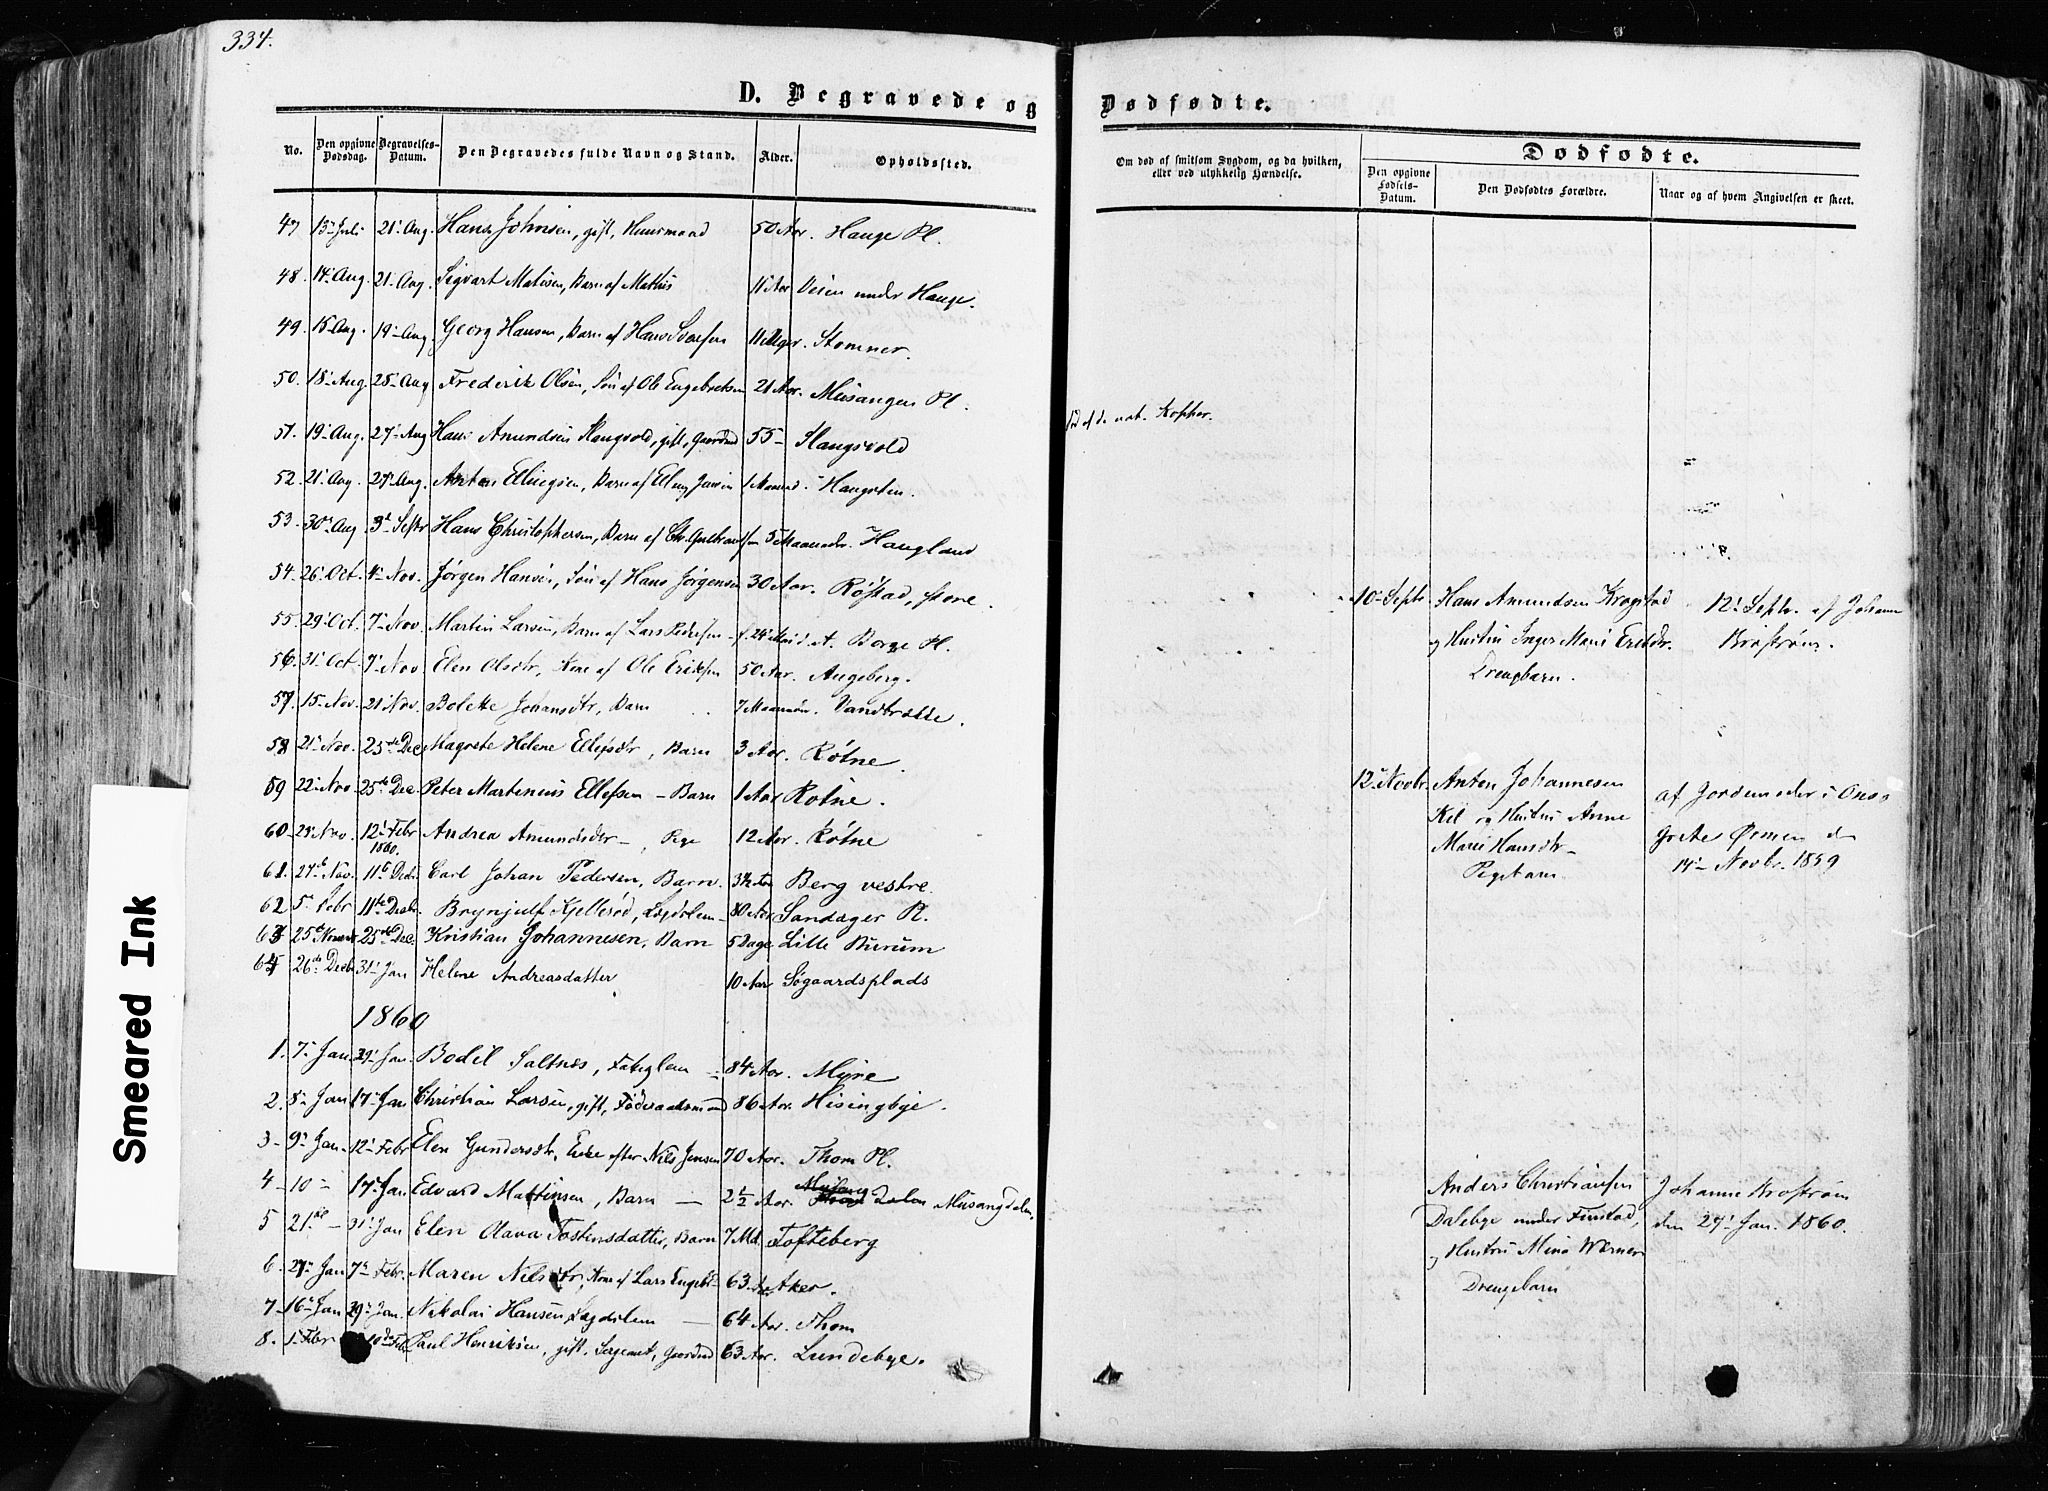 334.
D. Begravede og Dødfødte.
No. Den opgivne Dødsdag. Begravelses-Datum. Den Begravedes fulde Navn og Stand. Alder. Opholdssted.
47 13- Juli 21- Aug. Hans Johnsen, gift, Huusmand 50 Aar. Hauge Pl.
48. 14- Aug. 21- Aug. Sigvart Matisen, Barn af Mathis 11 Aar Veien under Hauge.
49. 15- Aug. 19- Aug. Georg Hansen, Barn af Hans 11 Uger. Stomner.
50. 18- Aug. 25- Aug Frederik Olsen, Søn af Ole Engebretsen 21 Aar. Musangen Pl.
51. 19- Aug. 27- Aug Hans Amundsen Slangsvold, gift, Gaardmd 55 - Slangsvold
52. 21- Aug. 27- Aug. Anton Ellingsen, Barn af Elling Jensen 1 Maaned. Haugsten.
53. 30- Aug 3d Septr Hans Christophersen, Barn af Chr. 5 Maaneder. Haugland
54. 26- Oct. 4- Nov. Jørgen Hansen, Søn af Hans Jørgensen 30 Aar. Røstad, store.
55. 29- Oct. 7- Nov. Martin Larsen, Barn af Lars Pedersen f. 24 Borge Pl.
56. 31- Oct 7- Nov Elen Olsdtr, Kone af Ole Eriksen 50 Aar. Augeberg.
57. 15- Nov. 21 Nov. Bolette Johansdtr, Barn 7 Vandtrætte.
58 21- Nov. 25de Dec. Magrete Helene Ellefsdtr, Barn 3 Aar. Rötne.
59 22- Nov 25de Dec. Peter Martenius Ellefsen - Barn 1 Aar Rötne.
60 - 23- Nov. 12- Febr 1860. Andrea Amundsdtr -, Pige 12 Aar. Rötne
61. 27- Nov. 11te Carl Johan Pedersen, Barn. Berg vestre.
62 5- 11te Decbr. Brynjulf Kjellerød, Lægdslem - 80 Aar Sandager Pl.
63 25de 25de Dec. Kristian Johannesen, Barn 5 Dage Lille Burum
64 26de Decbr 31- Jan Helene Andreasdatter 10 Aar Søgaardsplads
1860
1. 7- Jan 29- Jan. Bodil Saltnes, Fatiglem - 84 Aar. Myre
2. 8- Jan 17- Jan Christian Larsen, gift, Føderaadsmand 86 Aar. Hisingbye.
3 - 9- Jan. 12- Febr Elen Gundersdtr, Enke efter Nils Jensen 70 Aar. Thom Pl.
4 - 10 - 17- Jan Edvard Martinsen, Barn - 2½ Aar. Musangdalen.
5 21de - 31- Jan Elen Olava Tostensdatter, Barn 7 Md. Tofteberg
6. 27- Jan 7- Febr. Maren Nilsdtr, Kone af Lars 63. Aker.
7 - 16- Jan 29- Jan. Nikolai Hansen, Lægdslem - 64 Aar. Thom
8. 1- Febr Paul Henriksen, gift, Sergeant, Gaardmd 63 Aar. Lundebye.
Om død af smitsom Sygdom, og da hvilken, eller ved ulykkelig Hændelse.
Dødfødte.
Den opgivne Fødsels-Datum. Den Dødfødtes Forældre. Naar og af hvem Angivelsen er skeet.
Død af de nat. Kopper.
10- Septr Hans Amundsen Krogstad 12- Septr. af Johanne
og Hustru Inger Marie Eriksdtr. Broström.
Drengebarn.
12- Novbr. Anton Johannesen af Jordemoder i Onsø
Kil og Hustru Anne Grete Osmen den
Marie Hansdtr - 14- Novbr. 1859
Pigebarn.
Anders Christiansen Johanne Broström
Dalebye under Finstad, den 27- Jan. 1860.
og Hustru Mina Werner
Drengebarn
Smeared Ink